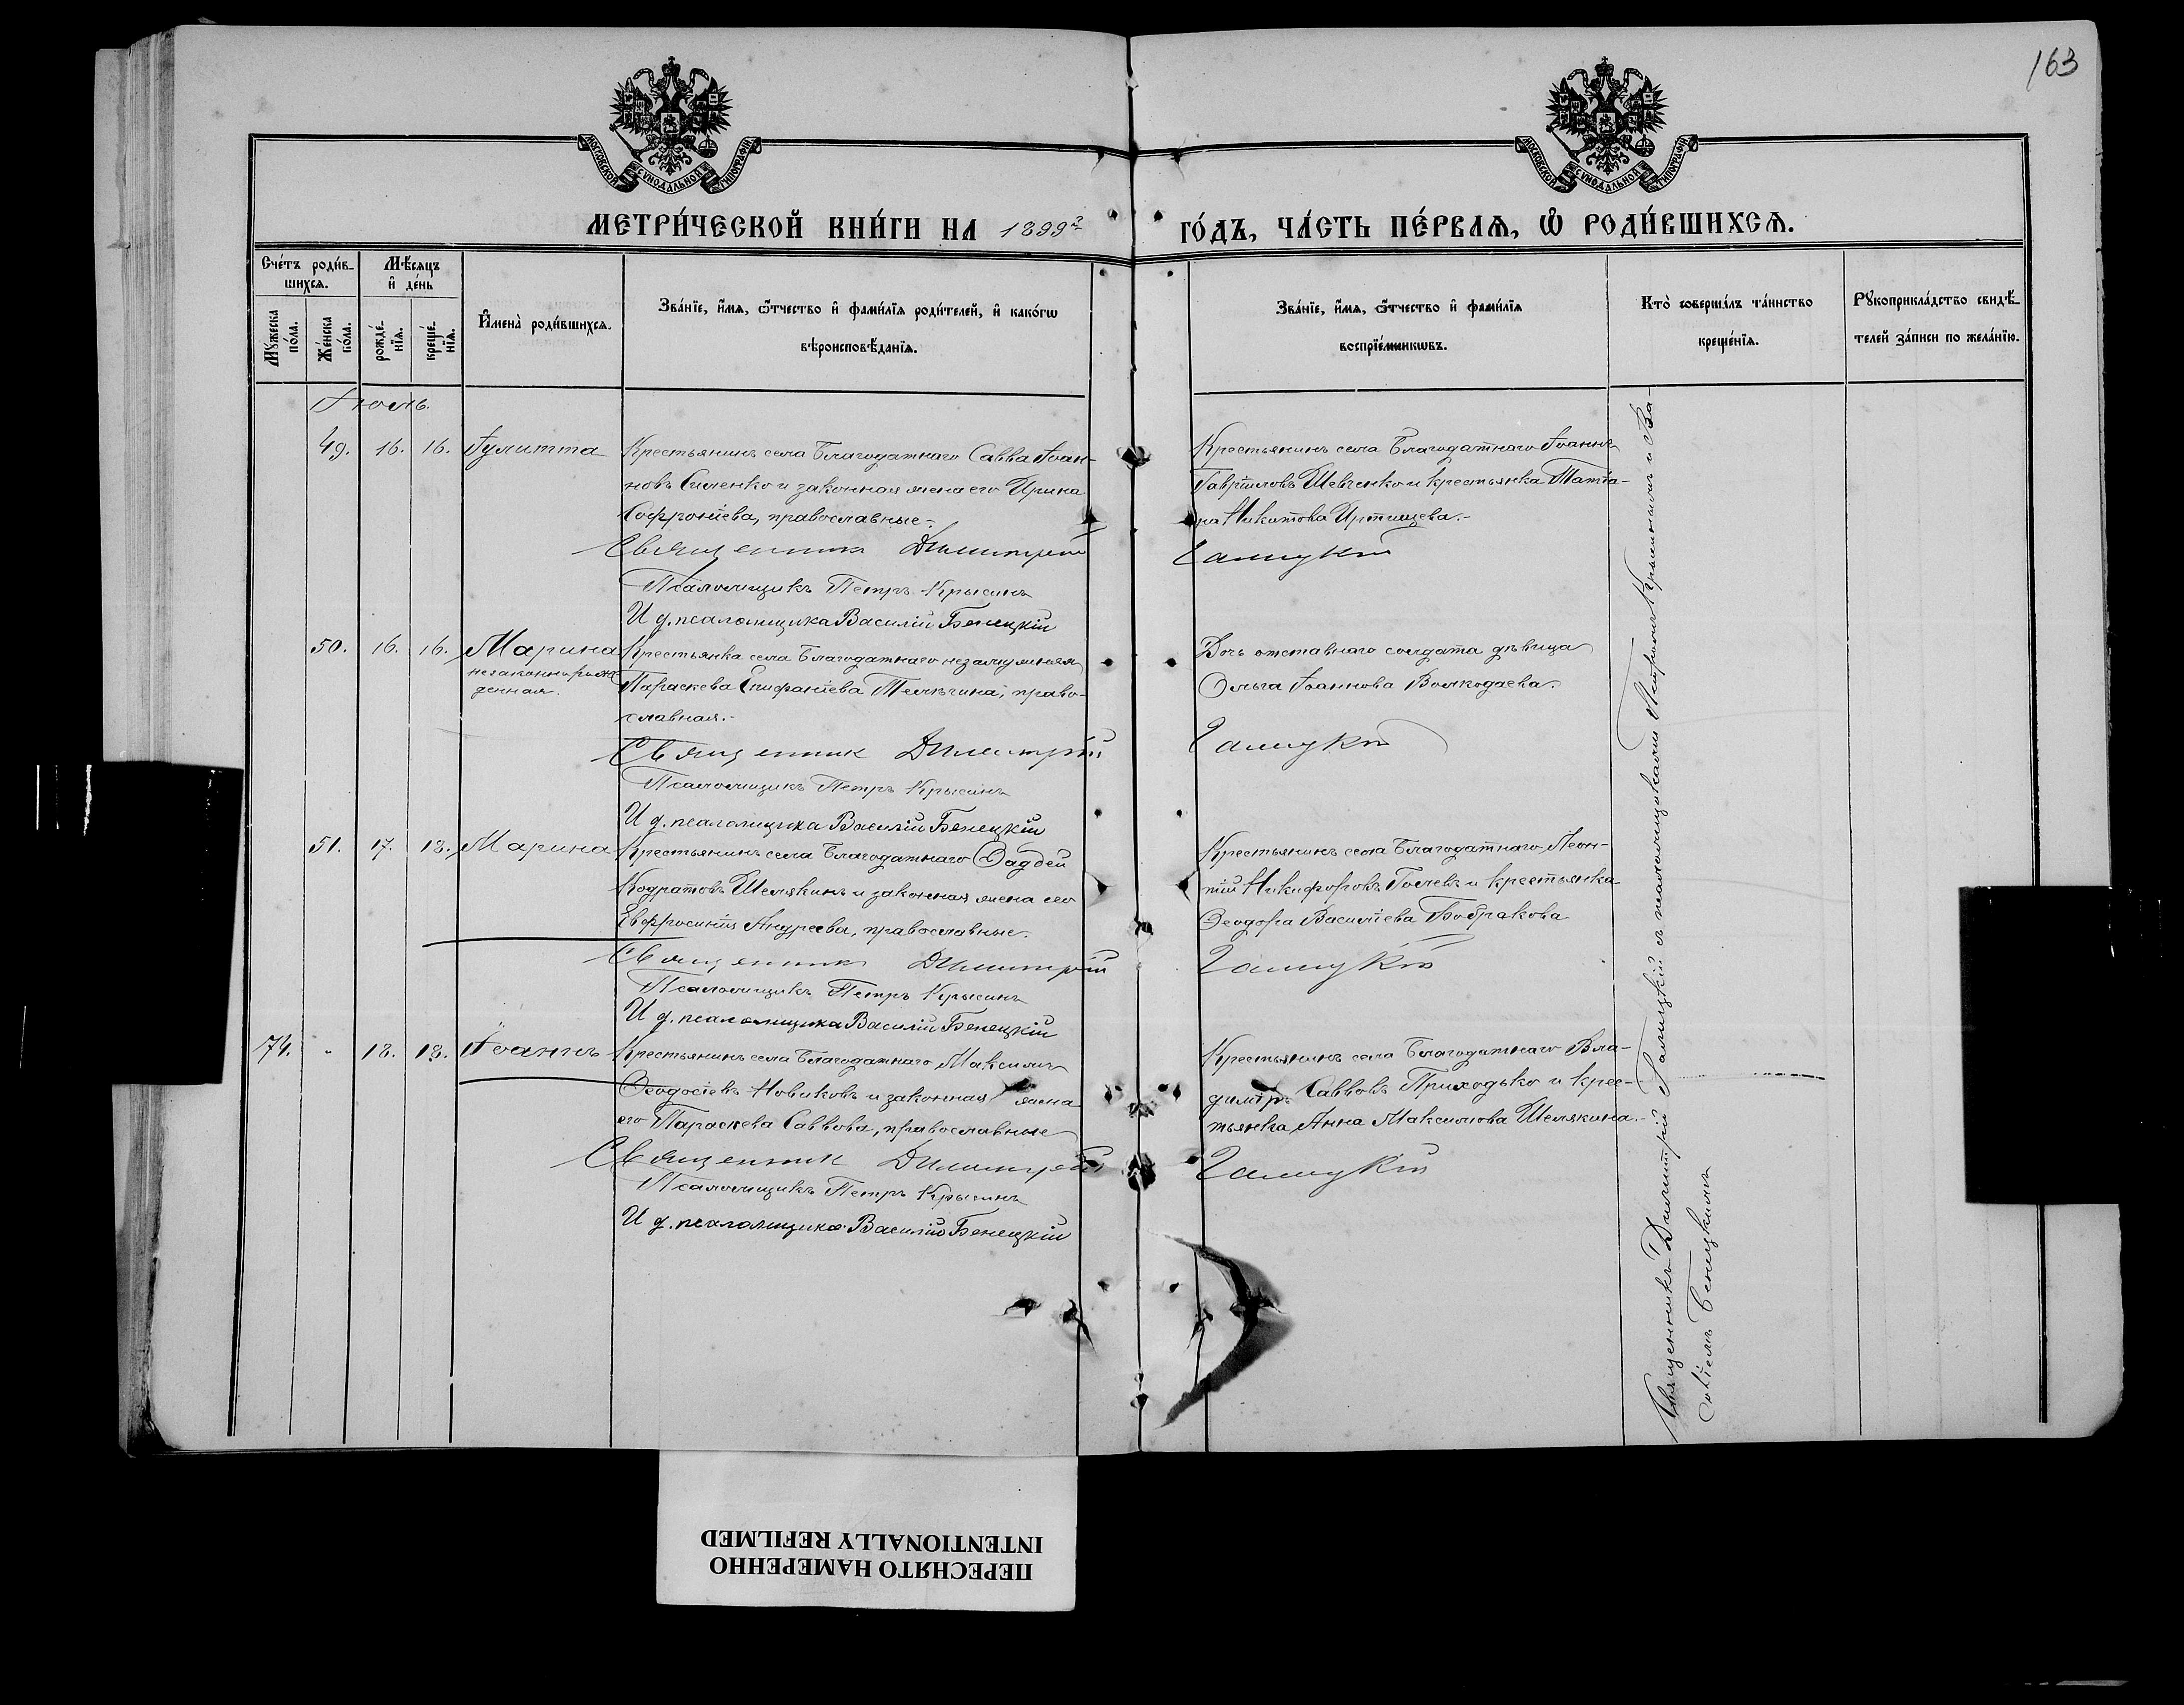 163
МОСКОВСКОЙ СУНОДАЛЬНОЙ ТИПОГРАФІИ
МОСКОВСКОЙ СУНОДАЛЬНОЙ ТИПОГРАФІИ
МЕТРИ́ЧЕСКОЙ КНИ́ГИ НА 1899 г
ГО́ДЪ, ЧА́СТЬ ПЕ́РВАѦ, Ѡ РОДИ́ВШИХСѦ.
Сче́тъ роди́в-
шихсѧ.
Мꙋ́жеска по́ла.
Же́нска по́ла.
Мѣ́сѧцъ и҆ де́нь
рожде́-
нїѧ.
креще́-
нїѧ.
И҆мена̀ роди́вшихсѧ.
Зва́нїе, и҆́мѧ, ѻ҆́тчество и҆ фами́лїѧ роди́телей, и҆ како́гѡ
вѣроисповѣ́данїѧ.
Зва́нїе, и҆́мѧ, ѻ҆́тчество и҆ фами́лїѧ
воспрїе́мникѡвъ.
Кто̀ соверши́лъ та́инство
креще́нїѧ.
Рꙋкоприкла́дство свидѣ́-
телей за́писи по жела́нїю.
Іюль.
49. 16. 16. Іулитта
Крестьянинъ села Благодатнаго Савва Іоан-
новъ Сименко и законная жена его Ирина
Софроніева, православные.-
Священникъ Димитрій
Псаломщикъ Петръ Крысинъ
И д. псаломщика Василій Бенецкій
Крестьянинъ села Благодатнаго Іоаннъ
Гавріиловъ Шевченко и крестьянка Татіа-
на Никитова Иртищева.-
Галицкій
50. 16. 16. Марина
незаконнорож-
денная.
Крестьянка села Благодатнаго незамужняя
Параскева Епифаніева Телегина, право-
славная.-
Священникъ Димитрій
Псаломщикъ Петръ Крысинъ
И д. псаломщика Василій Бенецкій
Дочь отставнаго солдата дѣвица
Ольга Іоаннова Волкодаева.
Галицкій
51. 17. 18. Марина
Крестьянинъ села Благодатнаго Ѳаддей
Кодратовъ Шелякинъ и законная жена его
Евфросинія Андреева, православные.
Священникъ Димитрій
Псаломщикъ Петръ Крысинъ
И д. псаломщика Василій Бенецкій
Крестьянинъ села Благодатнаго Леон-
тій Никифоровъ и крестьянка
Ѳеодора Василіева Бобракова
Галицкій
74. " 18. 18. Іоаннъ
Крестьянинъ села Благодатнаго Максимъ
Ѳеодосіевъ Новиковъ и законная жена
его Параскева Саввова, православные
Священникъ Димитрій
Псаломщикъ Петръ Крысинъ
И д. псаломщика Василій Бенецкій
Крестьянинъ села Благодатнаго Вла-
димиръ Саввовъ Приходько и крес-
тьянка Анна Максимова Шелякина.
Галицкій
Священникъ Димитрій Галицкій съ псаломщиками Петромъ Крысинымъ и Ва-
силіемъ Бенецкимъ
ПЕРЕСНЯТО НАМЕРЕННО
INTENTIONALLY REFILMED